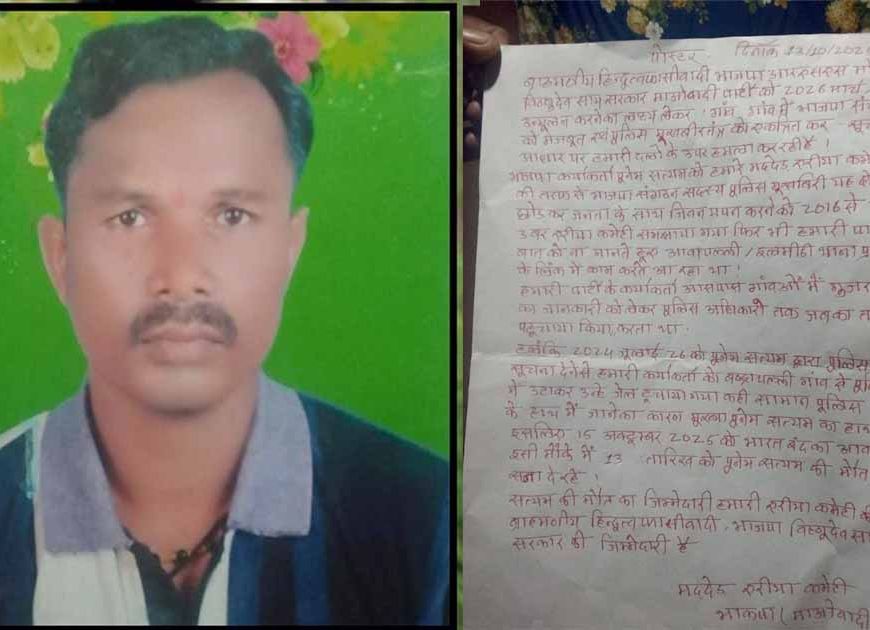 पोस्टर दिनांक 13/10/202
ब्राहमणीय हिन्दुत्वफासीवादी भाजपा आरएसएस
विष्णुदेव साय सरकार माओवादी पार्टी को 2026 मार्च
उन्मूलन करनेका लक्ष्य लेकर गांव गांव में भाजपा
को मजबुत एवं पुलिस मुखबीरतंत्र को एकत्रित कर
आधार पर हमारी दलों के उपर हमला कर रही है!
भाजपा कार्यकर्ता पुनेम सत्यम को हमारे मददेड़ एरीया
की तरफ से भाजपा संगठन सदस्य पुलिस मुखबिरी यह
छोड़ कर जनता के साथ जिवन यपन करने को 2016 से
उबर एरीया कमेटी समझाया गया फिर भी हमारी
बात को ना मानते हुए आवापल्ली / इलमीडी थाना
के लिंक में काम करते आ रहा था!
हमारी पार्टी के कार्यकर्ता आसपास गांवओं में
का जानकारी को लेकर पुलिस अधिकारी तक
पहुचाया किया करता था.
हलांकि 2024 जुलाई 26 को पुनेम सत्यम द्वारा पुलिस
सूचना देनेसे हमारी कार्यकर्ता को गांव से
में उटाकर उनके जेल गया कही सामान पुलिस
के हाथ में जानेका कारण मुख्या पुनेम सत्यम का
इसलिए 15 अक्टुम्बर 2025 को भारत बंद का
इसी मौके में 13 तारिख को पुनेम सत्यम की मौत
सजा दे रहे !
सत्यम की मौत का जिम्मेदारी हमारी एरीया कमेटी
ब्राहमणीय हिन्दुत्व फासीवादी भाजपा विष्णुदेव
सरकार की जिम्मेदारी है
मददेड़ एरीया कमेटी
भाकपा (माओवादी